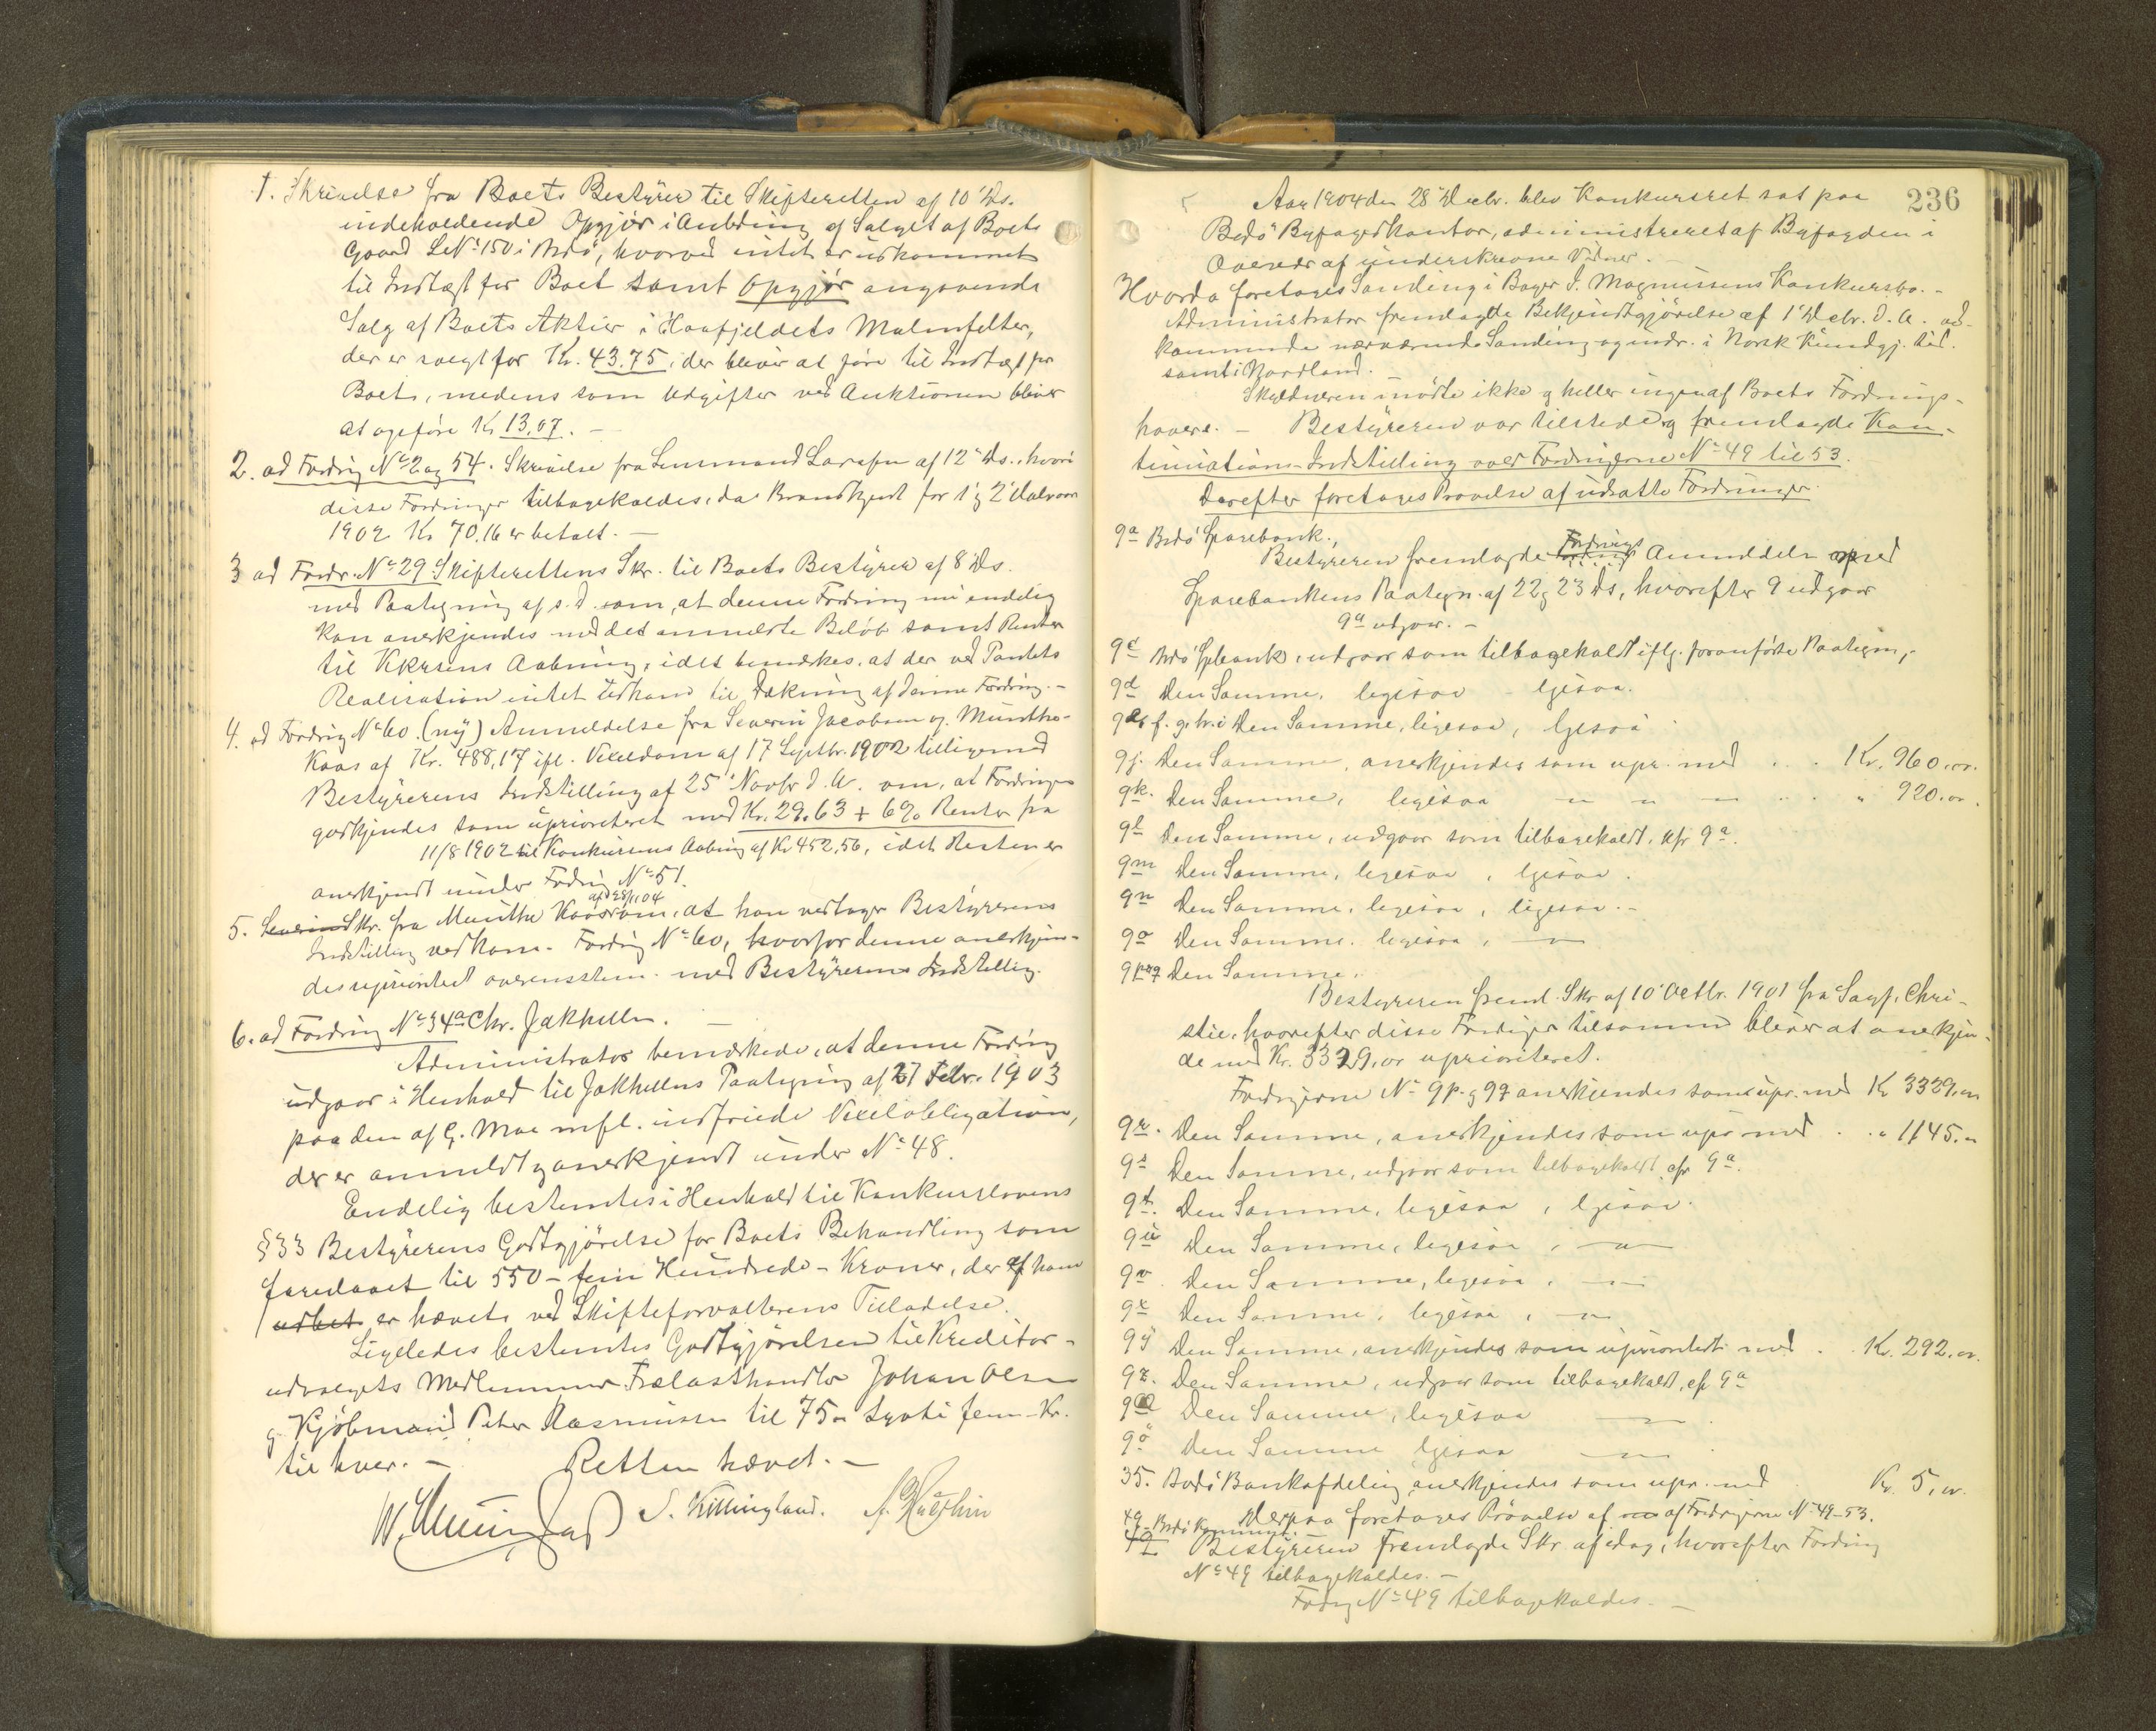 1. Skrivelse fra Boets Bestyrer til Skifteretten af 10' Ds.
indeholdende Opgjør i Anledning af Salget af Boets
Gaard LNº 150 i Bodø, hvorved intet er udkommet
til Indtægt for Boet samt Opgjør angaaende
Salg af Boets Aktier i Haafjeldets Malmfelter,
der er solgt for Kr. 43.75, der bliver at føre til Indtægt for
Boet, medens som Udgifter ved Auktionen bliver
at opføre Kr 13,07. —
2. ad Fordring Nº 2 og 54. Skrivelse fra Lensmand Larssen af 12' Ds., hvori
disse Fordringer tilbagekaldes, da Brandkont for 1' og 2' Halvaar
1902 Kr 70.16 er betalt. —
3 ad Fordr. Nº 29 Skifterettens Skr. til Boets Bestyrer af 8' Ds.
med Paategning af s. D. om, at denne Fordring nu endelig
kan anerkjendes med det anmeldte Beløb samt Renter
til Kkrsens Aabning, idet bemærkes, at der ved Pantets
Realisation intet udkom til Dækning af denne Fordring. —
4. ad Fordring Nº 60. (ny) Anmeldelse fra Severin Jacobsen og Munthe-
Kaas af Kr. 488,17 ifl. Vexeldom af 17 Septbr. 1902 tilligemed
Bestyrerens Indstilling af 25' Novbr d. A. om, at Fordringen
godkjendes som uprioriteret med Kr. 29.63 + 6% Renter fra
11/8 1902 til Konkursens Aabning af Kr 452,56, idet Resten er
anerkjendt under Fodring Nº 51.
af 28/11 04
5. Severin Skr. fra Munthe Kaas om, at han vedtager Bestyrerens
Indstilling vedkom. Fordring Nº 60, hvorfor denne anerkjen-
des uprioritert overensstem. med Bestyrerens Indstilling.
6. ad Fordring Nº 34a Chr. Jakhelln. —
Administrator bemærkede, at denne Fordring
udgaar i Henhold til Jakhellns Paategning af 27 Febr. 1903
paa den af G. Moe mfl. indfriede Vexelobligation,
der er anmeldt og anerkjendt under Nº 48.
Endelig bestemtes i Henhold til Konkurslovens
§ 33 Bestyrerens Godtgjørelse for Boets Behandling som
foreslaaet til 550 – fem Hundrede – Kroner, der af ham
udbet er hævet ved Skifteforvalterens Tilladelse.
Ligeledes bestemtes Godtgjørelsen til Kreditor-
udvalgets Medlemmer Trælasthandler Johan Olsen
og Kjøbmand Peter Rasmussen til 75 – sytti fem – Kr.
til hver. — Retten hævet. —
S. Killingland.
236
Aar 1904 den 28' Decbr. blev Konkursret sat paa
Bodø Byfogedkontor, administreret af Byfogden i
Overvær af underskrevne Vidner. —
Hvorda foretoges Samling i Bager I. Magnussens Konkursbo. —
Administrator fremlagde Bekjendtgjørelse af 1' Decbr. d. A. ad-
kommende nærværende Samling og indr. i Norsk Kundgj. Tid.
samt i Nordland.
Skyldneren mødte ikke og heller ingen af Boets Fordrings-
havere. — Bestyreren var tilstede og fremlagde Kon-
tinuations-Indstilling over Fordringerne Nº 49 til 53.
Derefter foretages Prøvelse af udsatte Fordringer.
9a Bodø Sparebank.,
Bestyreren fremlagde Fordrings Anmeldeln med
Sparebankens Paategn. af 22 og 23 Ds, hvorefter 9 udgaar
9a udgaar. —
9c Bodø Spbank, udgaar som tilbagekaldt iflg. foranførte Paategn,-
9d Den Samme, ligesaa – ligesaa.
9e, f. g. h. i Den Samme, ligesaa, ligesaa
9j. Den Samme, anerkjendes som upr. med . . . Kr. 960.00.
9k. Den Samme, ligesaa — — — . . " 920.00.
9l Den Samme, udgaar som tilbagekaldt, cfr 9a.
9m Den Samme, ligesaa, ligesaa.
9n Den Samme, ligesaa, ligesaa. —
9o Den Samme. ligesaa, —
9p og q Den Samme.
Bestyreren freml. Skr af 10' Octbr. 1901 fra Sagf. Chri-
stie, hvorefter disse Fordringer tilsammen bliver at anerkjen-
de med Kr. 3329,00 uprioriteret.
Fordringerne Nº 9p. og 9q anerkjendes som upr. med Kr 3329.00
9r. Den Samme, anerkjendes som upr med . . " 1145. "
9s Den Samme, udgaar som tilbagekaldt, cfr 9a.
9t. Den Samme, ligesaa, ligesaa.
9u Den Samme, ligesaa, — " —
9v. Den Samme, ligesaa, — " —
9x Den Samme, ligesaa, — " —
9y Den Samme, anerkjendes som uprioritert med . . Kr. 292.00.
9z. Den Samme, udgaar som tilbagekaldt, cfr 9a
9æ Den Samme, ligesaa — " —
9ø Den Samme ligesaa — " —
35. Bodø Bankafdeling anerkjendes som upr. med Kr. 5,00.
Derpaa foretages Prøvelse af af Fordringerne Nº 49–53.
49 – Bodø Kommune.
Bestyreren fremlagde Skr af idag, hvorefter Fordring
Nº 49 tilbagekaldes. —
Fodrg Nº 49 tilbagekaldes. —